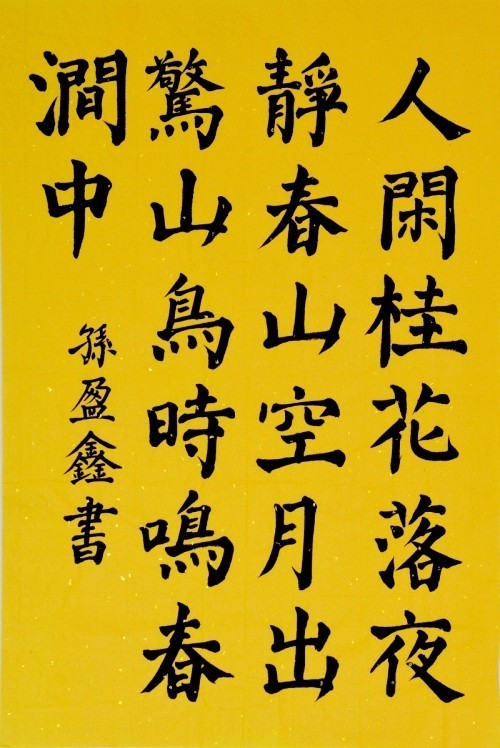 人閑桂花落夜
靜春山空月出
驚山鳥時鳴春
澗中
孫盈鑫書